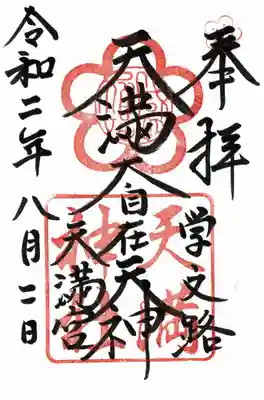 奉拝
学文路
天満大自在天神
天満宮
令和二年八月二日
天満
神宮